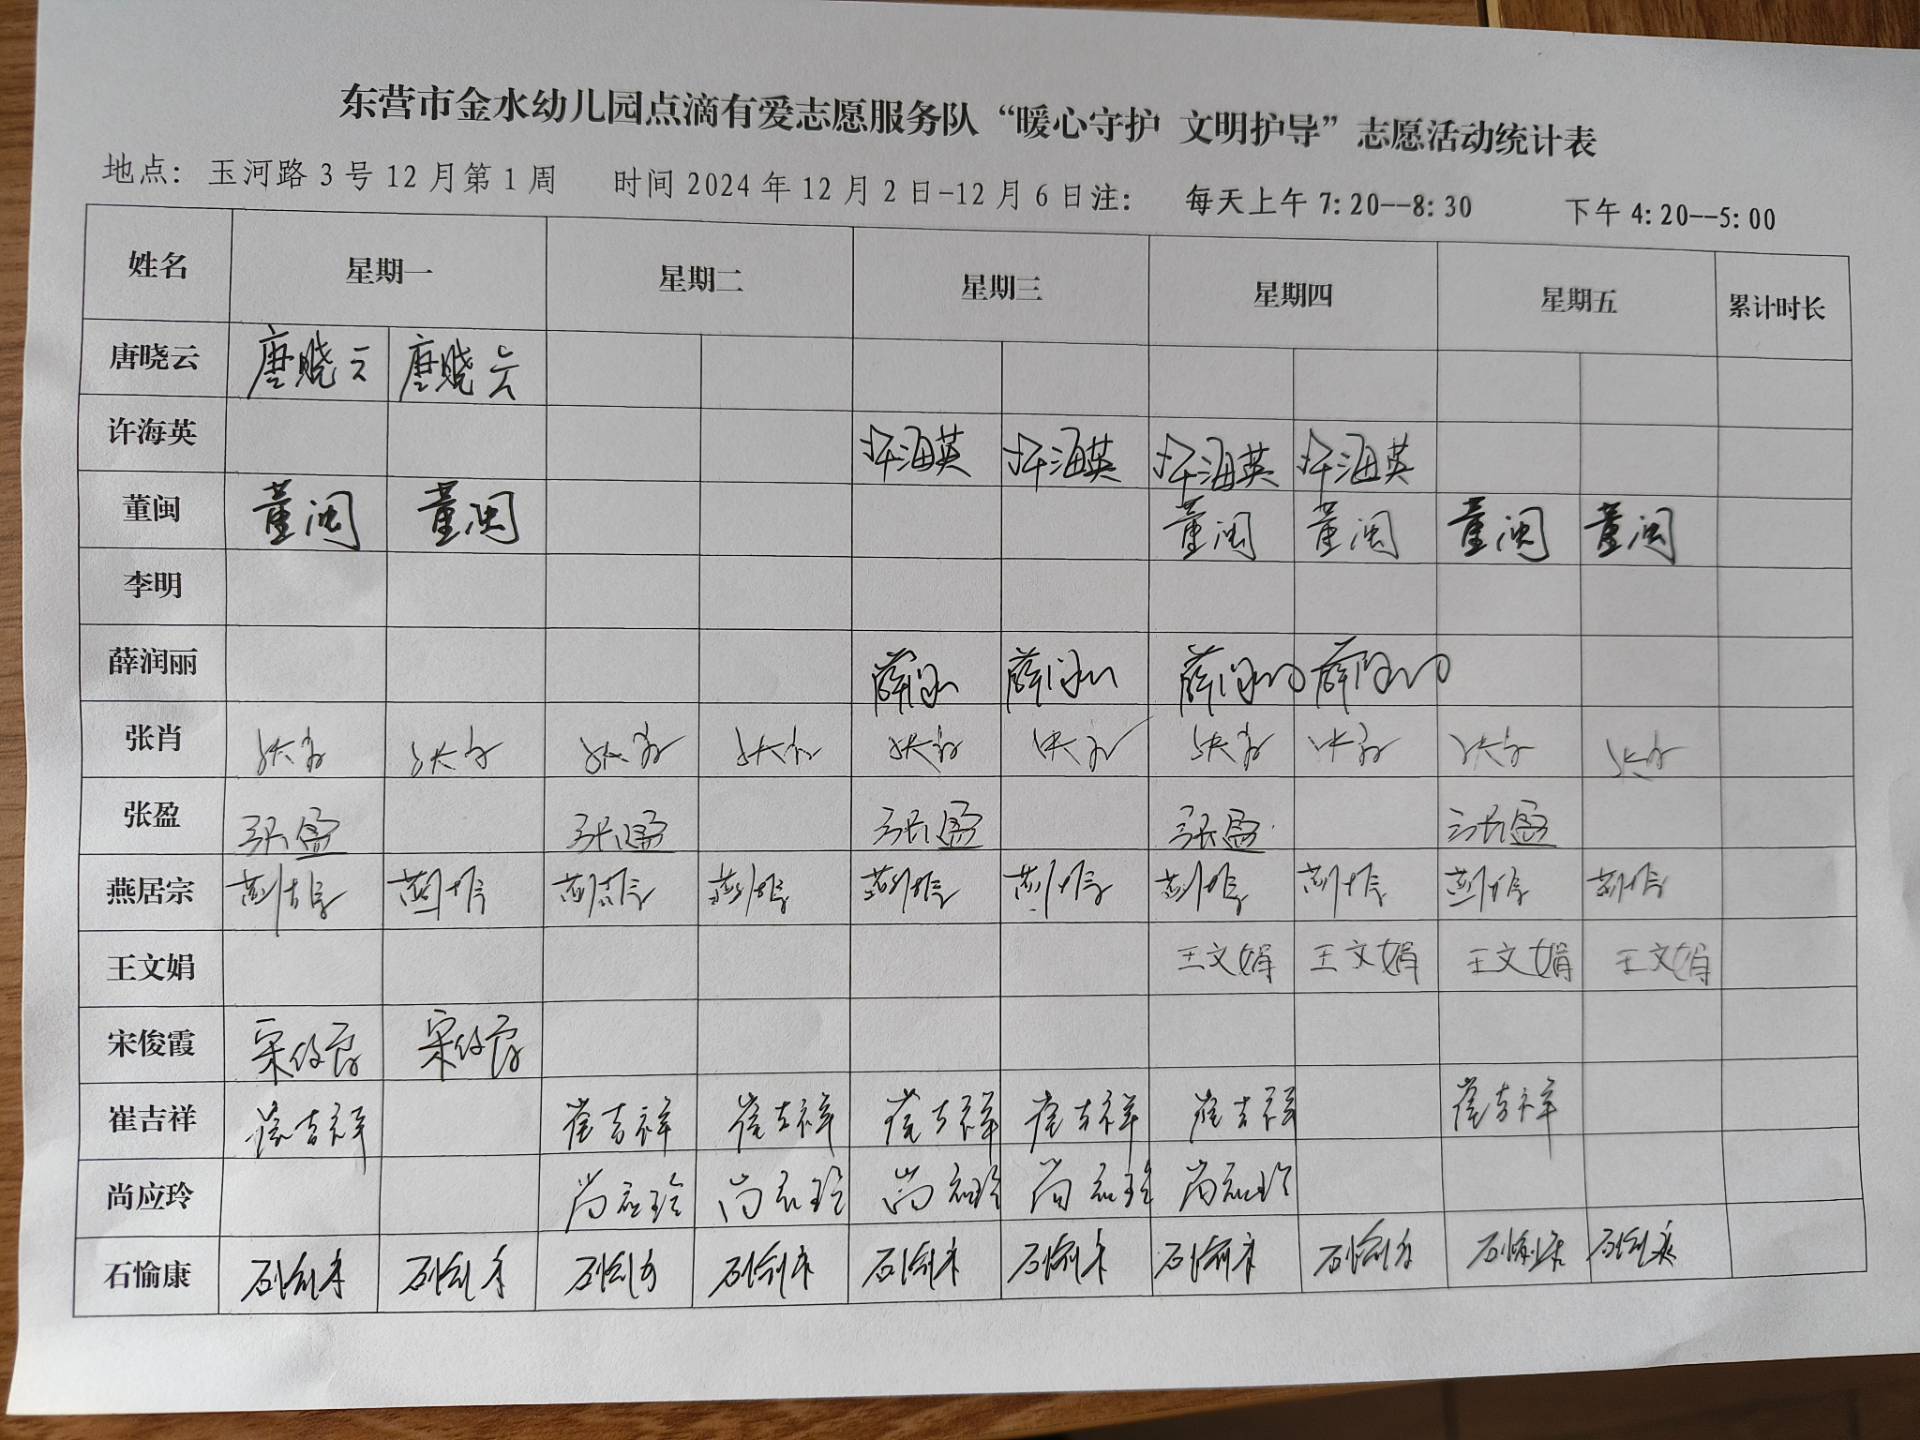 东营市金水幼儿园点滴有爱志愿服务队“暖心守护 文明护导”志愿活动统计表
地点: 玉河路3号12月第1周 时间2024年12月2日-12月6日注: 每天上午7:20--8:30 下午4:20--5:00
姓名 星期一 星期二 星期三 星期四 星期五 累计时长
唐晓云 唐晓云 唐晓云
许海英 许海英 许海英 许海英 许海英
董闽 董闽 董闽 董闽 董闽 董闽 董闽
李明
薛润丽 薛润丽 薛润丽 薛润丽 薛润丽
张肖 张肖 张肖 张肖 张肖 张肖 张肖 张肖 张肖 张肖 张肖
张盈 张盈 张盈 张盈 张盈 张盈
燕居宗 燕居宗 燕居宗 燕居宗 燕居宗 燕居宗 燕居宗 燕居宗 燕居宗 燕居宗 燕居宗
王文娟 王文娟 王文娟 王文娟 王文娟
宋俊霞 宋俊霞 宋俊霞
崔吉祥 崔吉祥 崔吉祥 崔吉祥 崔吉祥 崔吉祥 崔吉祥 崔吉祥
尚应玲 尚应玲 尚应玲 尚应玲 尚应玲 尚应玲
石愉康 石愉康 石愉康 石愉康 石愉康 石愉康 石愉康 石愉康 石愉康 石愉康 石愉康